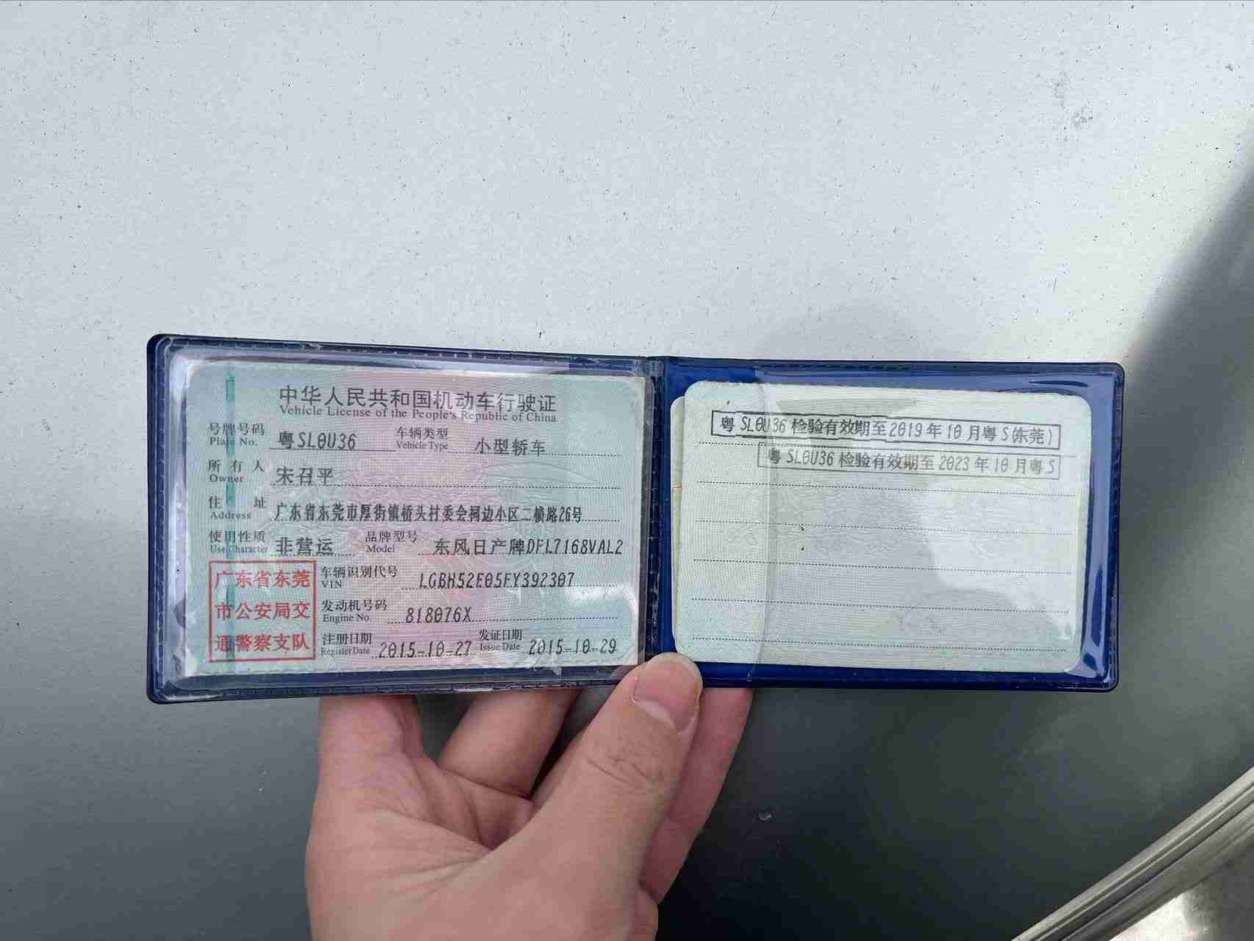 中华人民共和国机动车行驶证
Vehicle License of the People's Republic of China
号牌号码 粤SL0U36 车辆类型 小型轿车
Plate No. Vehicle Type
所有人 宋召平
Owner
住址 广东省东莞市厚街镇桥头村委会河边小区二横路26号
Address
使用性质 非营运 品牌型号 东风日产牌DFL7168VAL2
Use Character Model
广东省东莞
市公安局交
通警察支队
车辆识别代号 LGBH52E05FY392307
VIN
发动机号码 818076X
Engine No.
注册日期 2015-10-27 发证日期 2015-10-29
Register Date Issue Date
粤SL0U36检验有效期至2019年10月粤S(东莞)
粤SL0U36检验有效期至2023年10月粤S